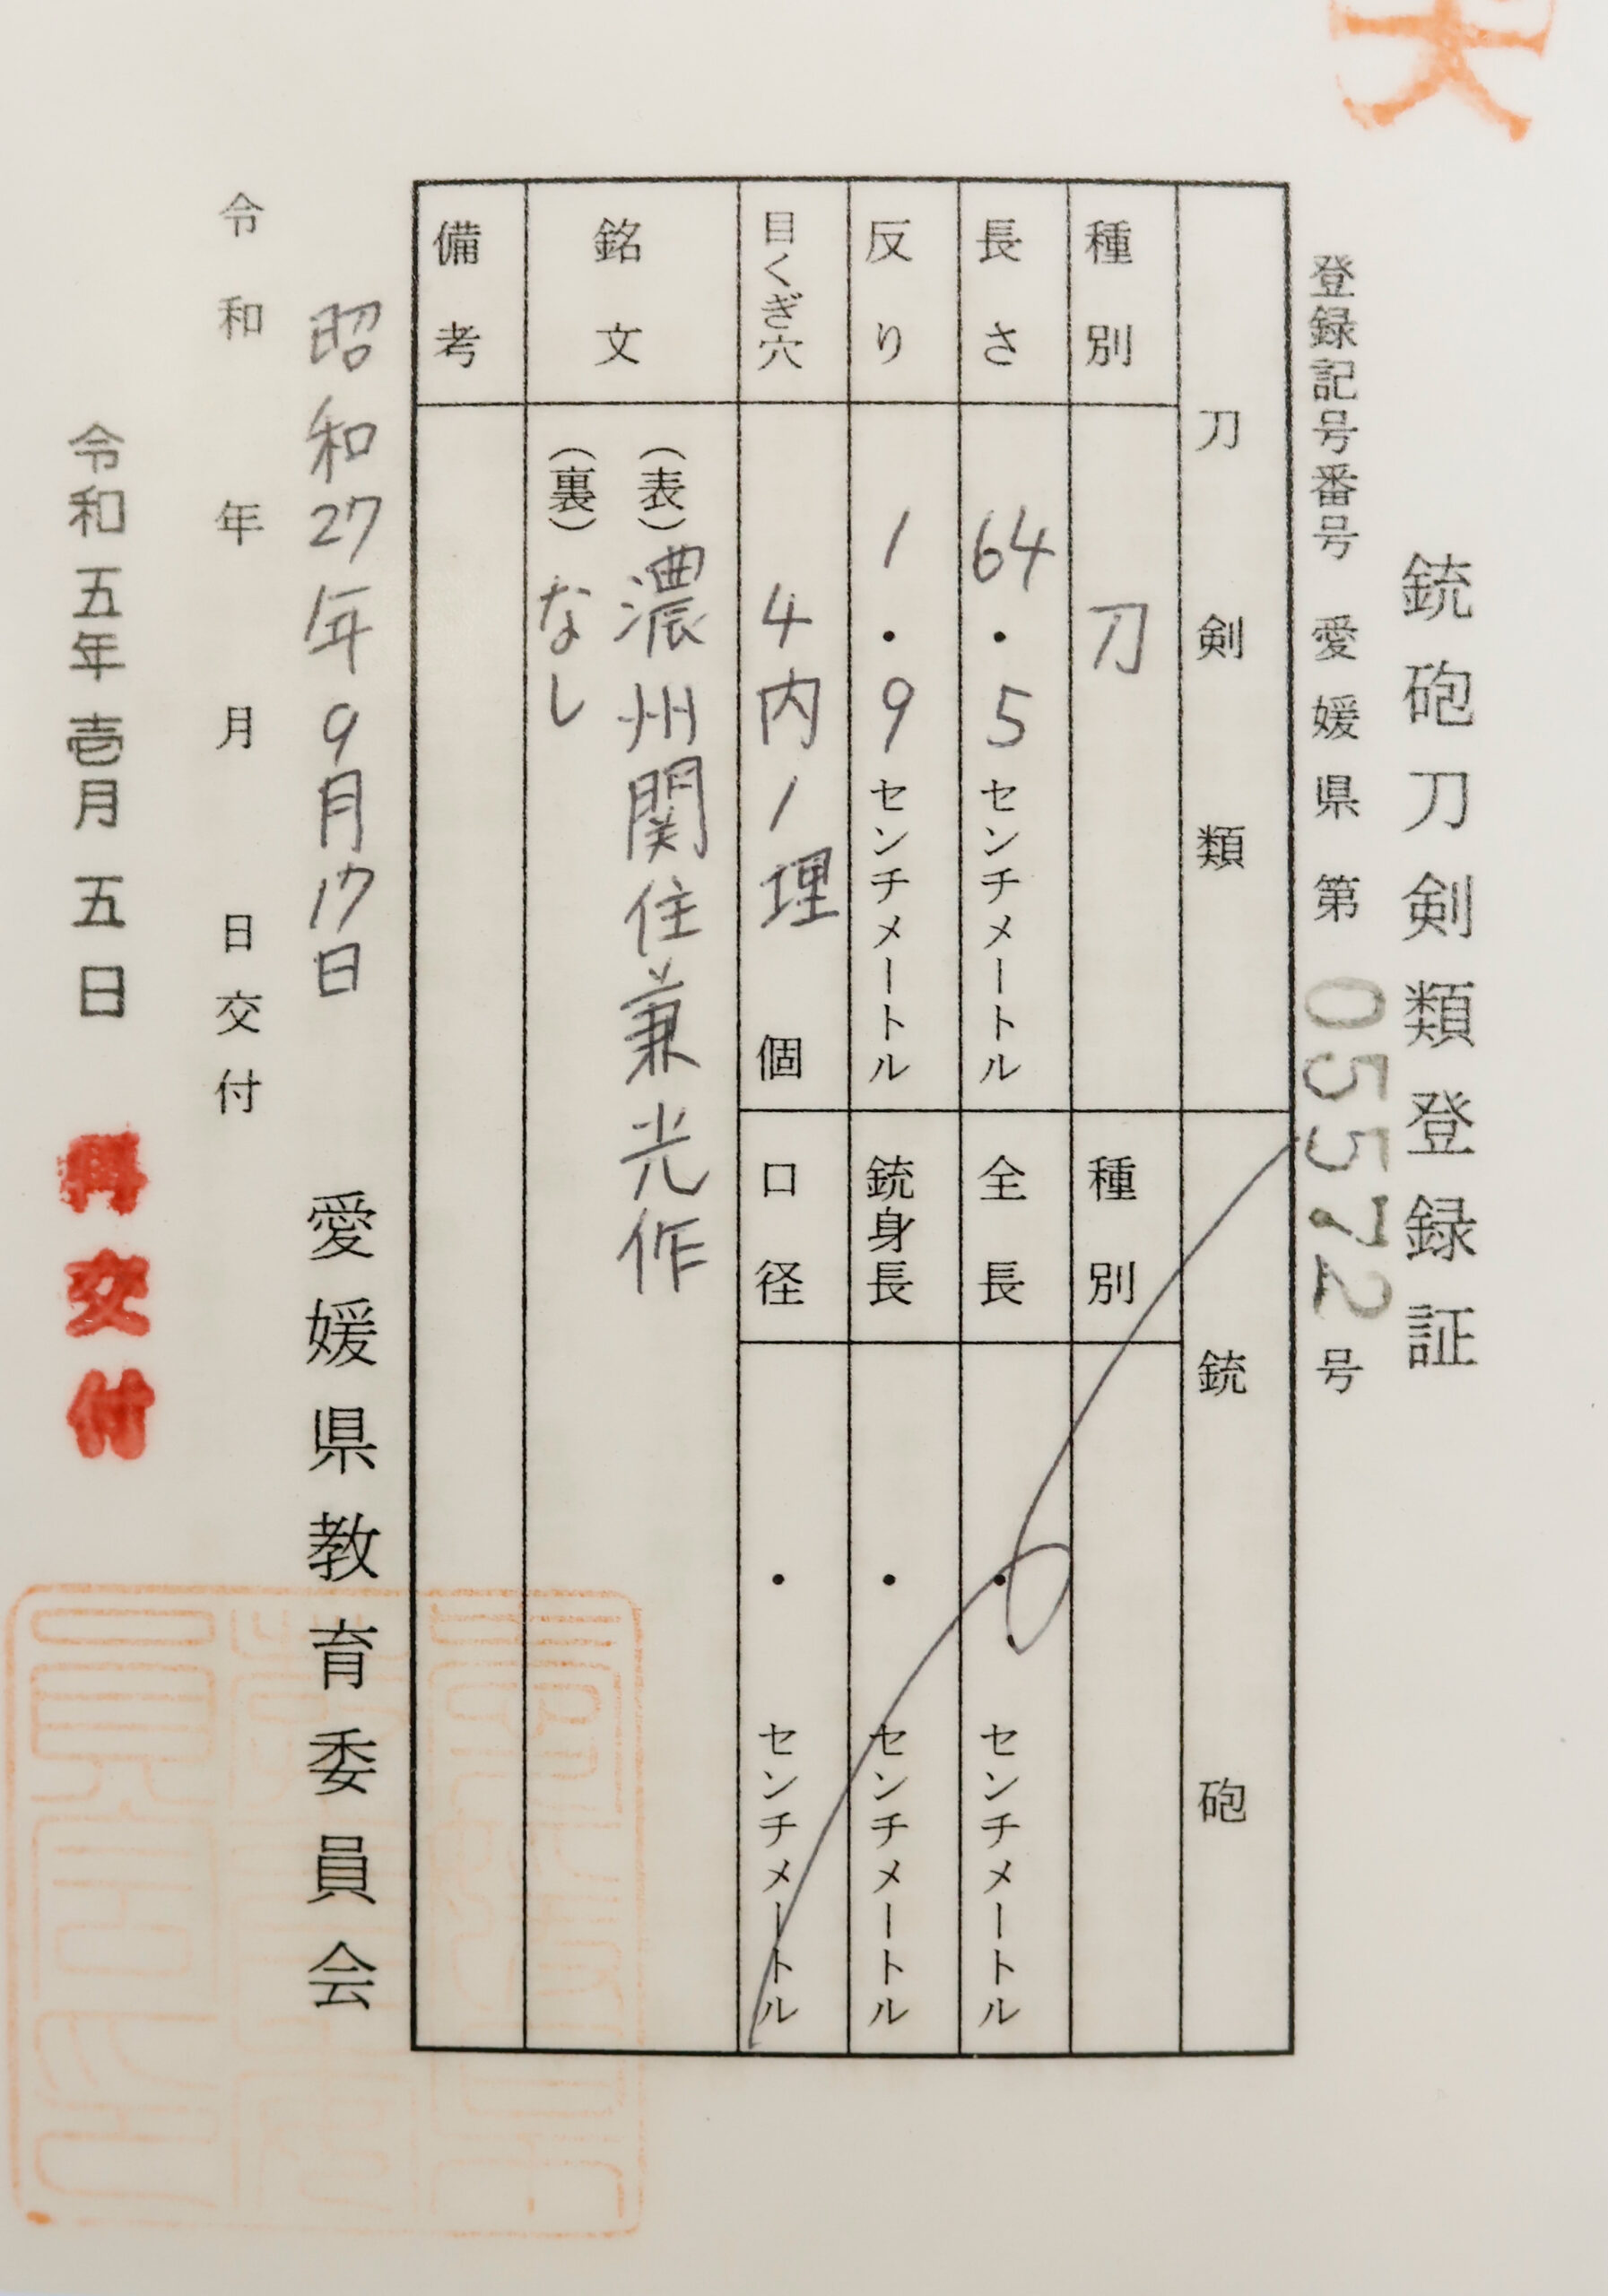 銃砲刀剣類登録証
登録記号番号 愛媛県 第 05572 号
刀剣類
銃砲
種別
刀
種別
長さ
64・5センチメートル
全長
・センチメートル
反り
1・9センチメートル
銃身長
・センチメートル
目くぎ穴
4内1埋 個
口径
・センチメートル
銘文
(表)濃州関住兼光作
(裏)なし
備考
昭和27年9月17日
愛媛県教育委員会
令和 年 月 日交付
令和五年壱月五日 再交付